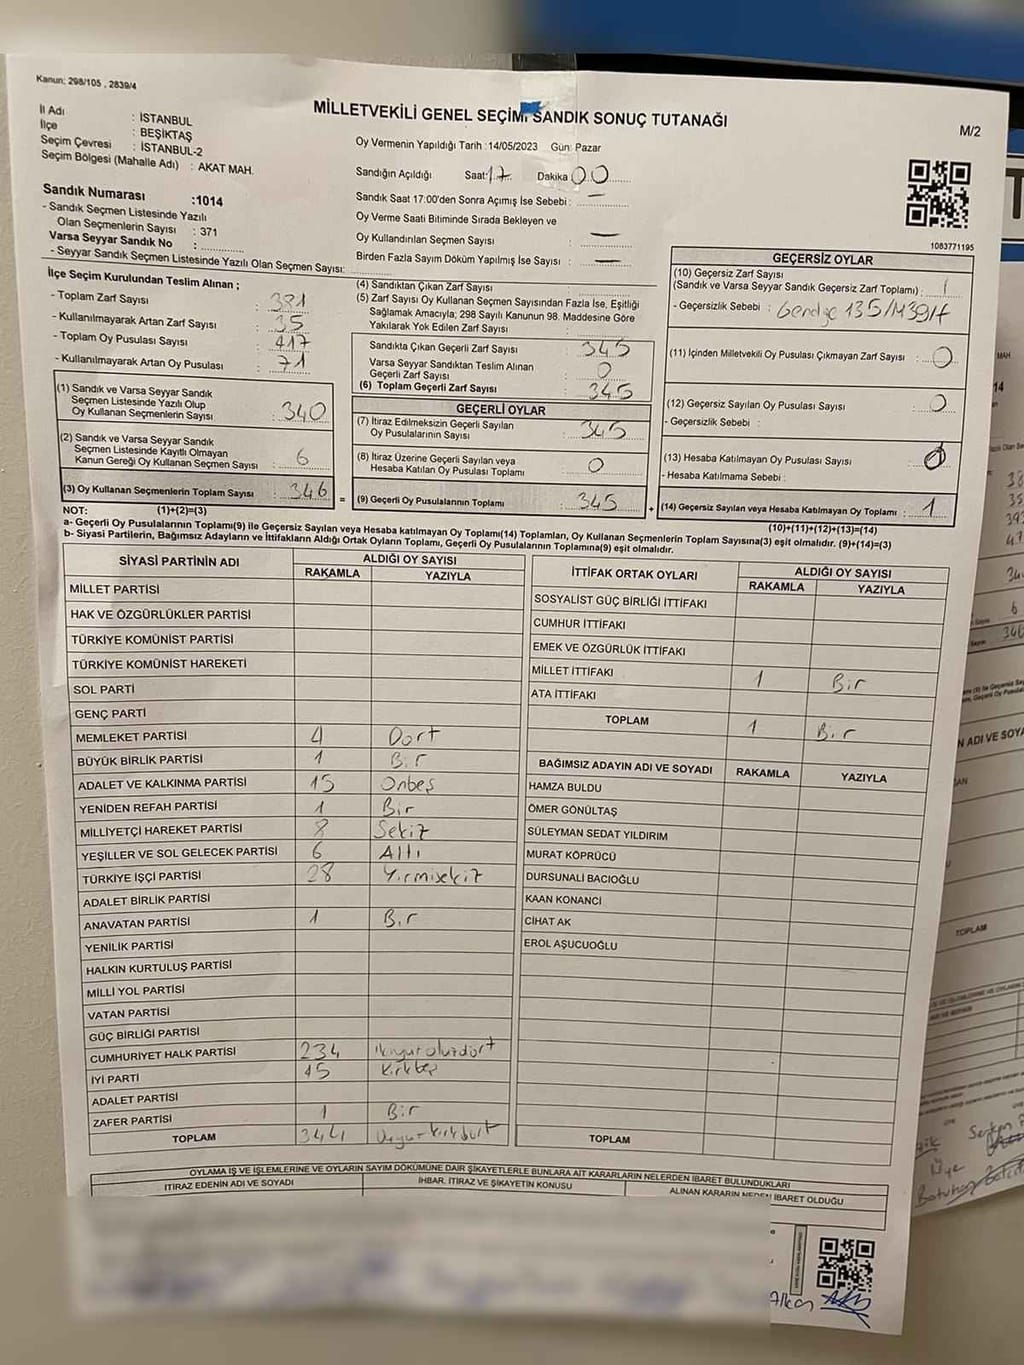 Kanun: 298/105 , 2839/4
MİLLETVEKİLİ GENEL SEÇİMİ SANDIK SONUÇ TUTANAĞI
M/2
İl Adı : İSTANBUL
İlçe : BEŞİKTAŞ
Seçim Çevresi : İSTANBUL-2
Seçim Bölgesi (Mahalle Adı) : AKAT MAH.
Sandık Numarası :1014
- Sandık Seçmen Listesinde Yazılı
Olan Seçmenlerin Sayısı : 371
Varsa Seyyar Sandık No :
- Seyyar Sandık Seçmen Listesinde Yazılı Olan Seçmen Sayısı:
Oy Vermenin Yapıldığı Tarih :14/05/2023 Gün: Pazar
Sandığın Açıldığı Saat:17 Dakika 00
Sandık Saat 17:00'den Sonra Açımış İse Sebebi : —
Oy Verme Saati Bitiminde Sırada Bekleyen ve
Oy Kullandırılan Seçmen Sayısı : —
Birden Fazla Sayım Döküm Yapılmış İse Sayısı : —
1083771195
İlçe Seçim Kurulundan Teslim Alınan ;
- Toplam Zarf Sayısı : 381
- Kullanılmayarak Artan Zarf Sayısı : 35
- Toplam Oy Pusulası Sayısı : 417
- Kullanılmayarak Artan Oy Pusulası : 71
(1) Sandık ve Varsa Seyyar Sandık
Seçmen Listesinde Yazılı Olup
Oy Kullanan Seçmenlerin Sayısı : 340
(2) Sandık ve Varsa Seyyar Sandık
Seçmen Listesinde Kayıtlı Olmayan
Kanun Gereği Oy Kullanan Seçmen Sayısı : 6
(3) Oy Kullanan Seçmenlerin Toplam Sayısı : 346
(4) Sandıktan Çıkan Zarf Sayısı :
(5) Zarf Sayısı Oy Kullanan Seçmen Sayısından Fazla İse, Eşitliği
Sağlamak Amacıyla; 298 Sayılı Kanunun 98. Maddesine Göre
Yakılarak Yok Edilen Zarf Sayısı :
Sandıkta Çıkan Geçerli Zarf Sayısı : 345
Varsa Seyyar Sandıktan Teslim Alınan
Geçerli Zarf Sayısı : 0
(6) Toplam Geçerli Zarf Sayısı : 345
GEÇERLİ OYLAR
(7) İtiraz Edilmeksizin Geçerli Sayılan
Oy Pusulalarının Sayısı : 345
(8) İtiraz Üzerine Geçerli Sayılan veya
Hesaba Katılan Oy Pusulası Toplamı : 0
= (9) Geçerli Oy Pusulalarının Toplamı : 345
GEÇERSİZ OYLAR
(10) Geçersiz Zarf Sayısı
(Sandık ve Varsa Seyyar Sandık Geçersiz Zarf Toplamı) : 1
- Geçersizlik Sebebi :
(11) İçinden Milletvekili Oy Pusulası Çıkmayan Zarf Sayısı : 0
(12) Geçersiz Sayılan Oy Pusulası Sayısı : 0
- Geçersizlik Sebebi :
(13) Hesaba Katılmayan Oy Pusulası Sayısı : 0
- Hesaba Katılmama Sebebi :
+ (14) Geçersiz Sayılan veya Hesaba Katılmayan Oy Toplamı : 1
NOT: (1)+(2)=(3)
(10)+(11)+(12)+(13)=(14)
a- Geçerli Oy Pusulalarının Toplamı(9) ile Geçersiz Sayılan veya Hesaba katılmayan Oy Toplamı(14) Toplamları, Oy Kullanan Seçmenlerin Toplam Sayısına(3) eşit olmalıdır. (9)+(14)=(3)
b- Siyasi Partilerin, Bağımsız Adayların ve İttifakların Aldığı Ortak Oyların Toplamı, Geçerli Oy Pusulalarının Toplamına(9) eşit olmalıdır.
SİYASİ PARTİNİN ADI ALDIĞI OY SAYISI
RAKAMLA YAZIYLA
MİLLET PARTİSİ
HAK VE ÖZGÜRLÜKLER PARTİSİ
TÜRKİYE KOMÜNİST PARTİSİ
TÜRKİYE KOMÜNİST HAREKETİ
SOL PARTİ
GENÇ PARTİ
MEMLEKET PARTİSİ 4 Dört
BÜYÜK BİRLİK PARTİSİ 1 Bir
ADALET VE KALKINMA PARTİSİ 15 Onbeş
YENİDEN REFAH PARTİSİ 1 Bir
MİLLİYETÇİ HAREKET PARTİSİ 8 Sekiz
YEŞİLLER VE SOL GELECEK PARTİSİ 6 Altı
TÜRKİYE İŞÇİ PARTİSİ 28 Yirmisekiz
ADALET BİRLİK PARTİSİ
ANAVATAN PARTİSİ 1 Bir
YENİLİK PARTİSİ
HALKIN KURTULUŞ PARTİSİ
MİLLİ YOL PARTİSİ
VATAN PARTİSİ
GÜÇ BİRLİĞİ PARTİSİ
CUMHURİYET HALK PARTİSİ 234 ikiyüzotuzdört
İYİ PARTİ 45 Kırkbeş
ADALET PARTİSİ
ZAFER PARTİSİ 1 Bir
TOPLAM 344 Üçyüzkırkdört
İTTİFAK ORTAK OYLARI ALDIĞI OY SAYISI
RAKAMLA YAZIYLA
SOSYALİST GÜÇ BİRLİĞİ İTTİFAKI
CUMHUR İTTİFAKI
EMEK VE ÖZGÜRLÜK İTTİFAKI
MİLLET İTTİFAKI 1 Bir
ATA İTTİFAKI
TOPLAM 1 Bir
BAĞIMSIZ ADAYIN ADI VE SOYADI RAKAMLA YAZIYLA
HAMZA BULDU
ÖMER GÖNÜLTAŞ
SÜLEYMAN SEDAT YILDIRIM
MURAT KÖPRÜCÜ
DURSUNALİ BACIOĞLU
KAAN KONANCI
CİHAT AK
EROL AŞUCUOĞLU
TOPLAM
OYLAMA İŞ VE İŞLEMLERİNE VE OYLARIN SAYIM DÖKÜMÜNE DAİR ŞİKAYETLERLE BUNLARA AİT KARARLARIN NELERDEN İBARET BULUNDUKLARI
İTİRAZ EDENİN ADI VE SOYADI İHBAR, İTİRAZ VE ŞİKAYETİN KONUSU ALINAN KARARIN NEDEN İBARET OLDUĞU
MAH
14
346
N ADI VE SOYA
TOPLAM
Üye